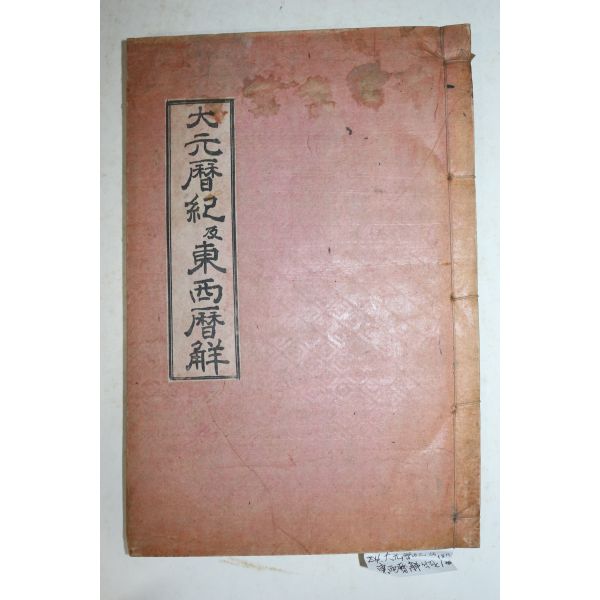 大元曆紀及東西曆觧